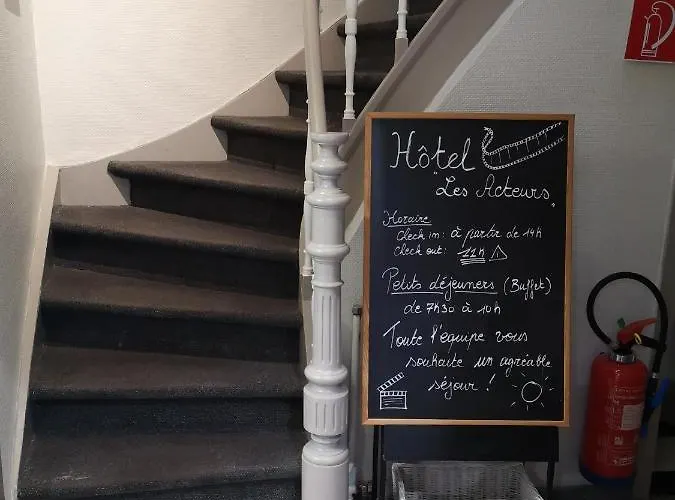 Hôtel
"Les Acteurs"
Horaire
Check in: à partir de 14h
Check out: 11h
Petits déjeuners (Buffet)
de 7h30 à 10h
Toute l'équipe vous
souhaite un agréable
séjour !